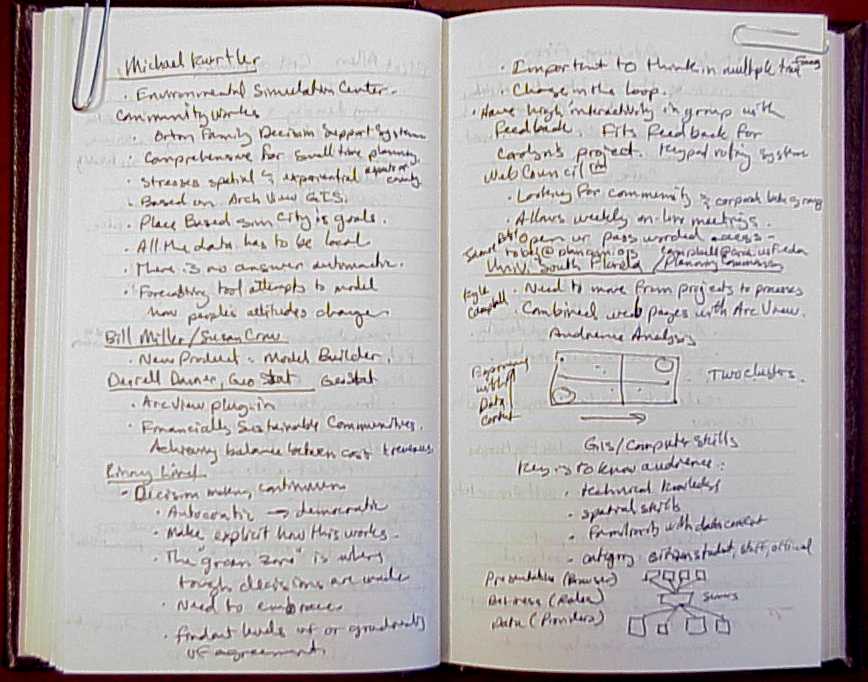 Michael Kwartler
· Environmental Simulation Center.
Community Works
Orton Family Decision Support System
· Comprehensive for small time planning.
· Stresses spatial & experiential aspects of county
· Based on Arch View GIS.
· Place Based Sim City is goals.
· All the data has to be local
· There is no answer automatic.
· Forecasting tool attempts to model
how people's attitudes change
Bill Miller/Susan Crow
· New Product = Model Builder.
Geo Stat GeoStat
· ArcView plug-in
· Financially Sustainable Communities.
Achieving balance between cost & revenues
· Decision making continuum
· Autocratic → democratic
· Make explicit how this works.
· The "green zone" is where
tough decisions are made
· Need to embrace
· Find out levels of or gradients
of agreements
· Important to think in multiple time
· Change in the loop.
· Have high interactivity in group with
feedback. Fits feedback for
Carolyn's project. Keypad voting system
Web Council
· Looking for community & corporate
· Allows weekly on-line meetings.
· Open or pass worded access -
Univ. South Florida / Planning Commission
Kyle Campbell
· Need to move from projects to processes
· Combined web pages with Arc View.
Audience Analysis
with
Data
Content
Two clusters.
GIS/Computer skills
Key is to know audience:
· technical knowledge
· spatial skills
· Familiarity with data content
· category - citizen, student, staff, official
Presentation (Browser)
Business (Rules) Servers
Data (Providers)